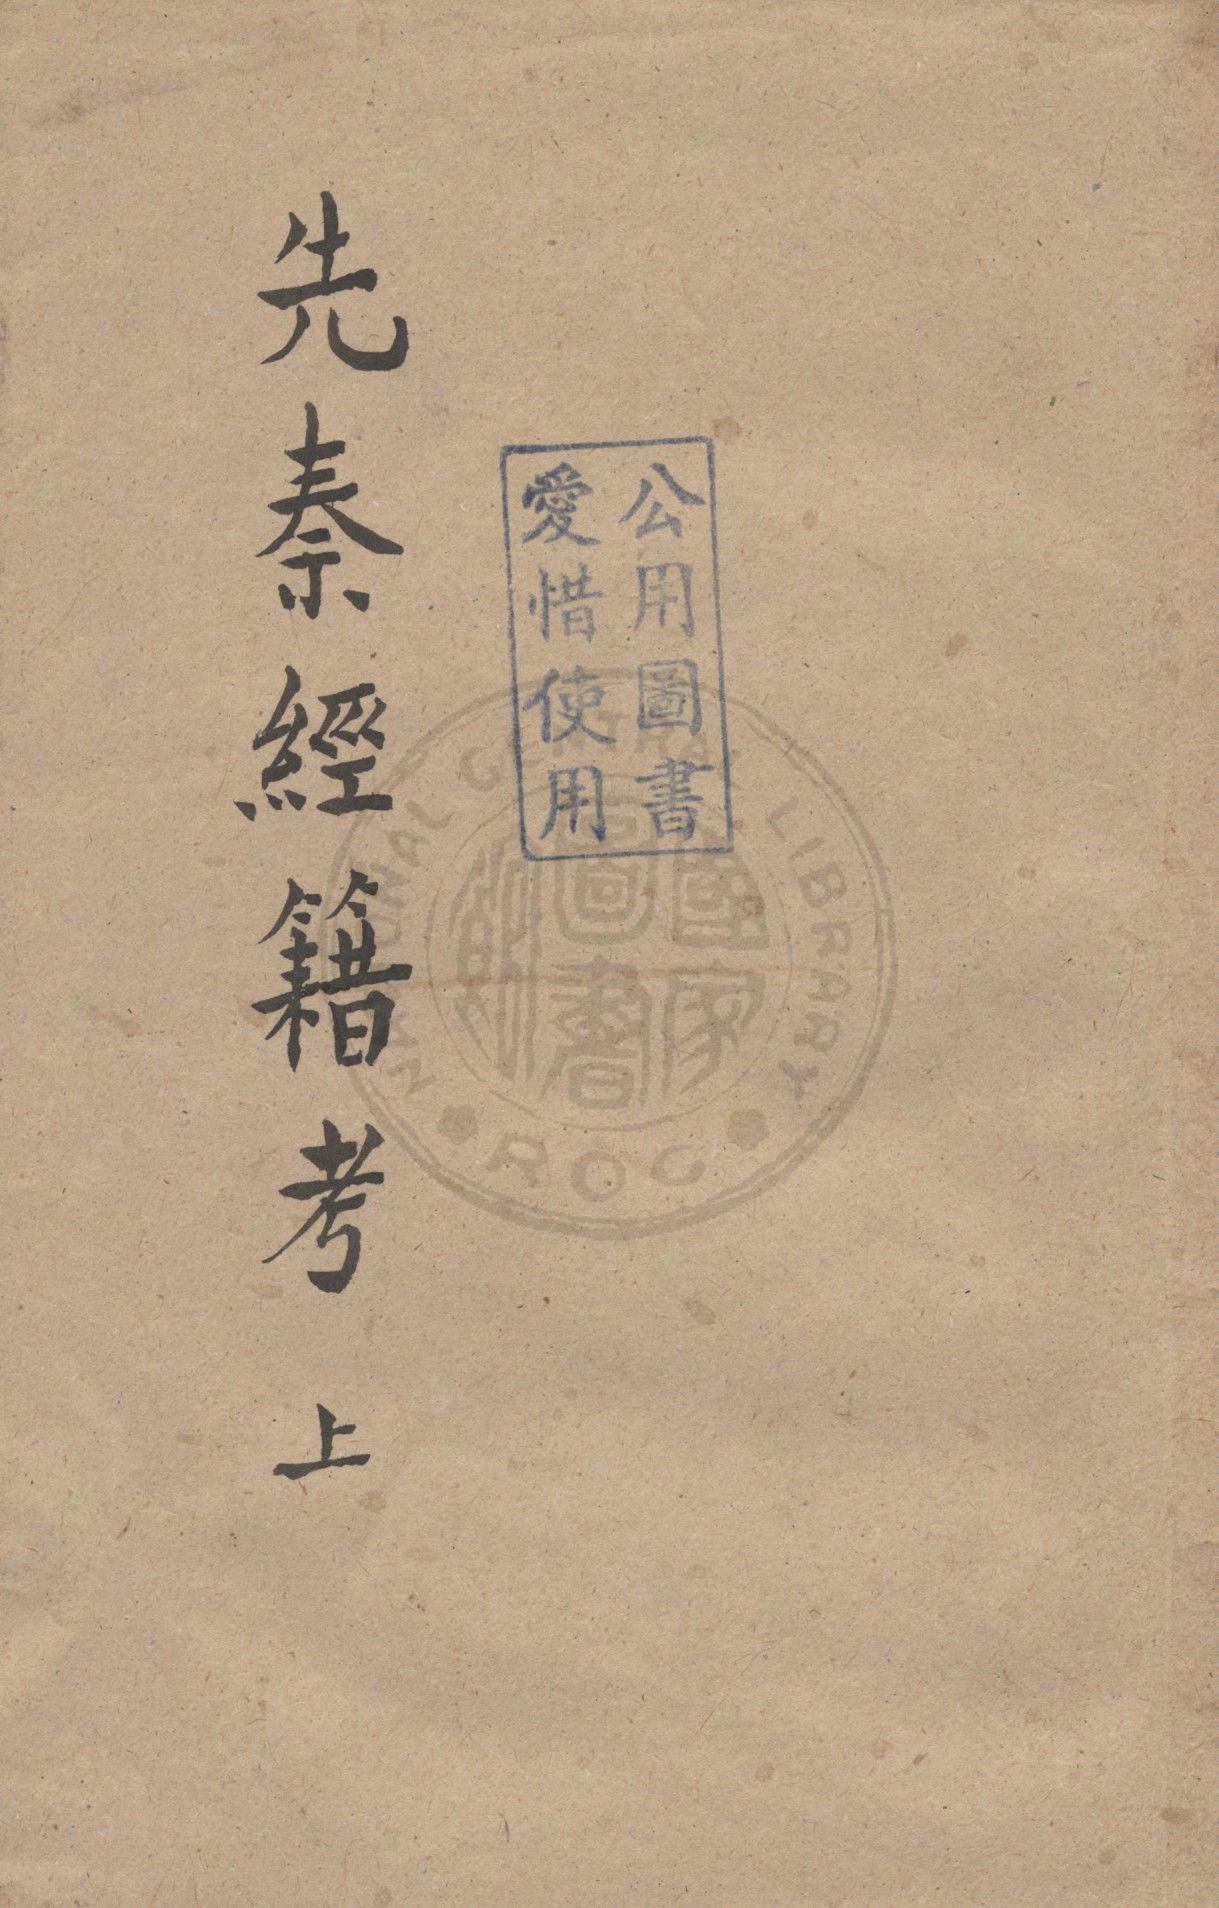 先秦經籍考 上
公用圖書
愛惜使用
NATIONAL CENTRAL LIBRARY
國家
圖書
館
ROC